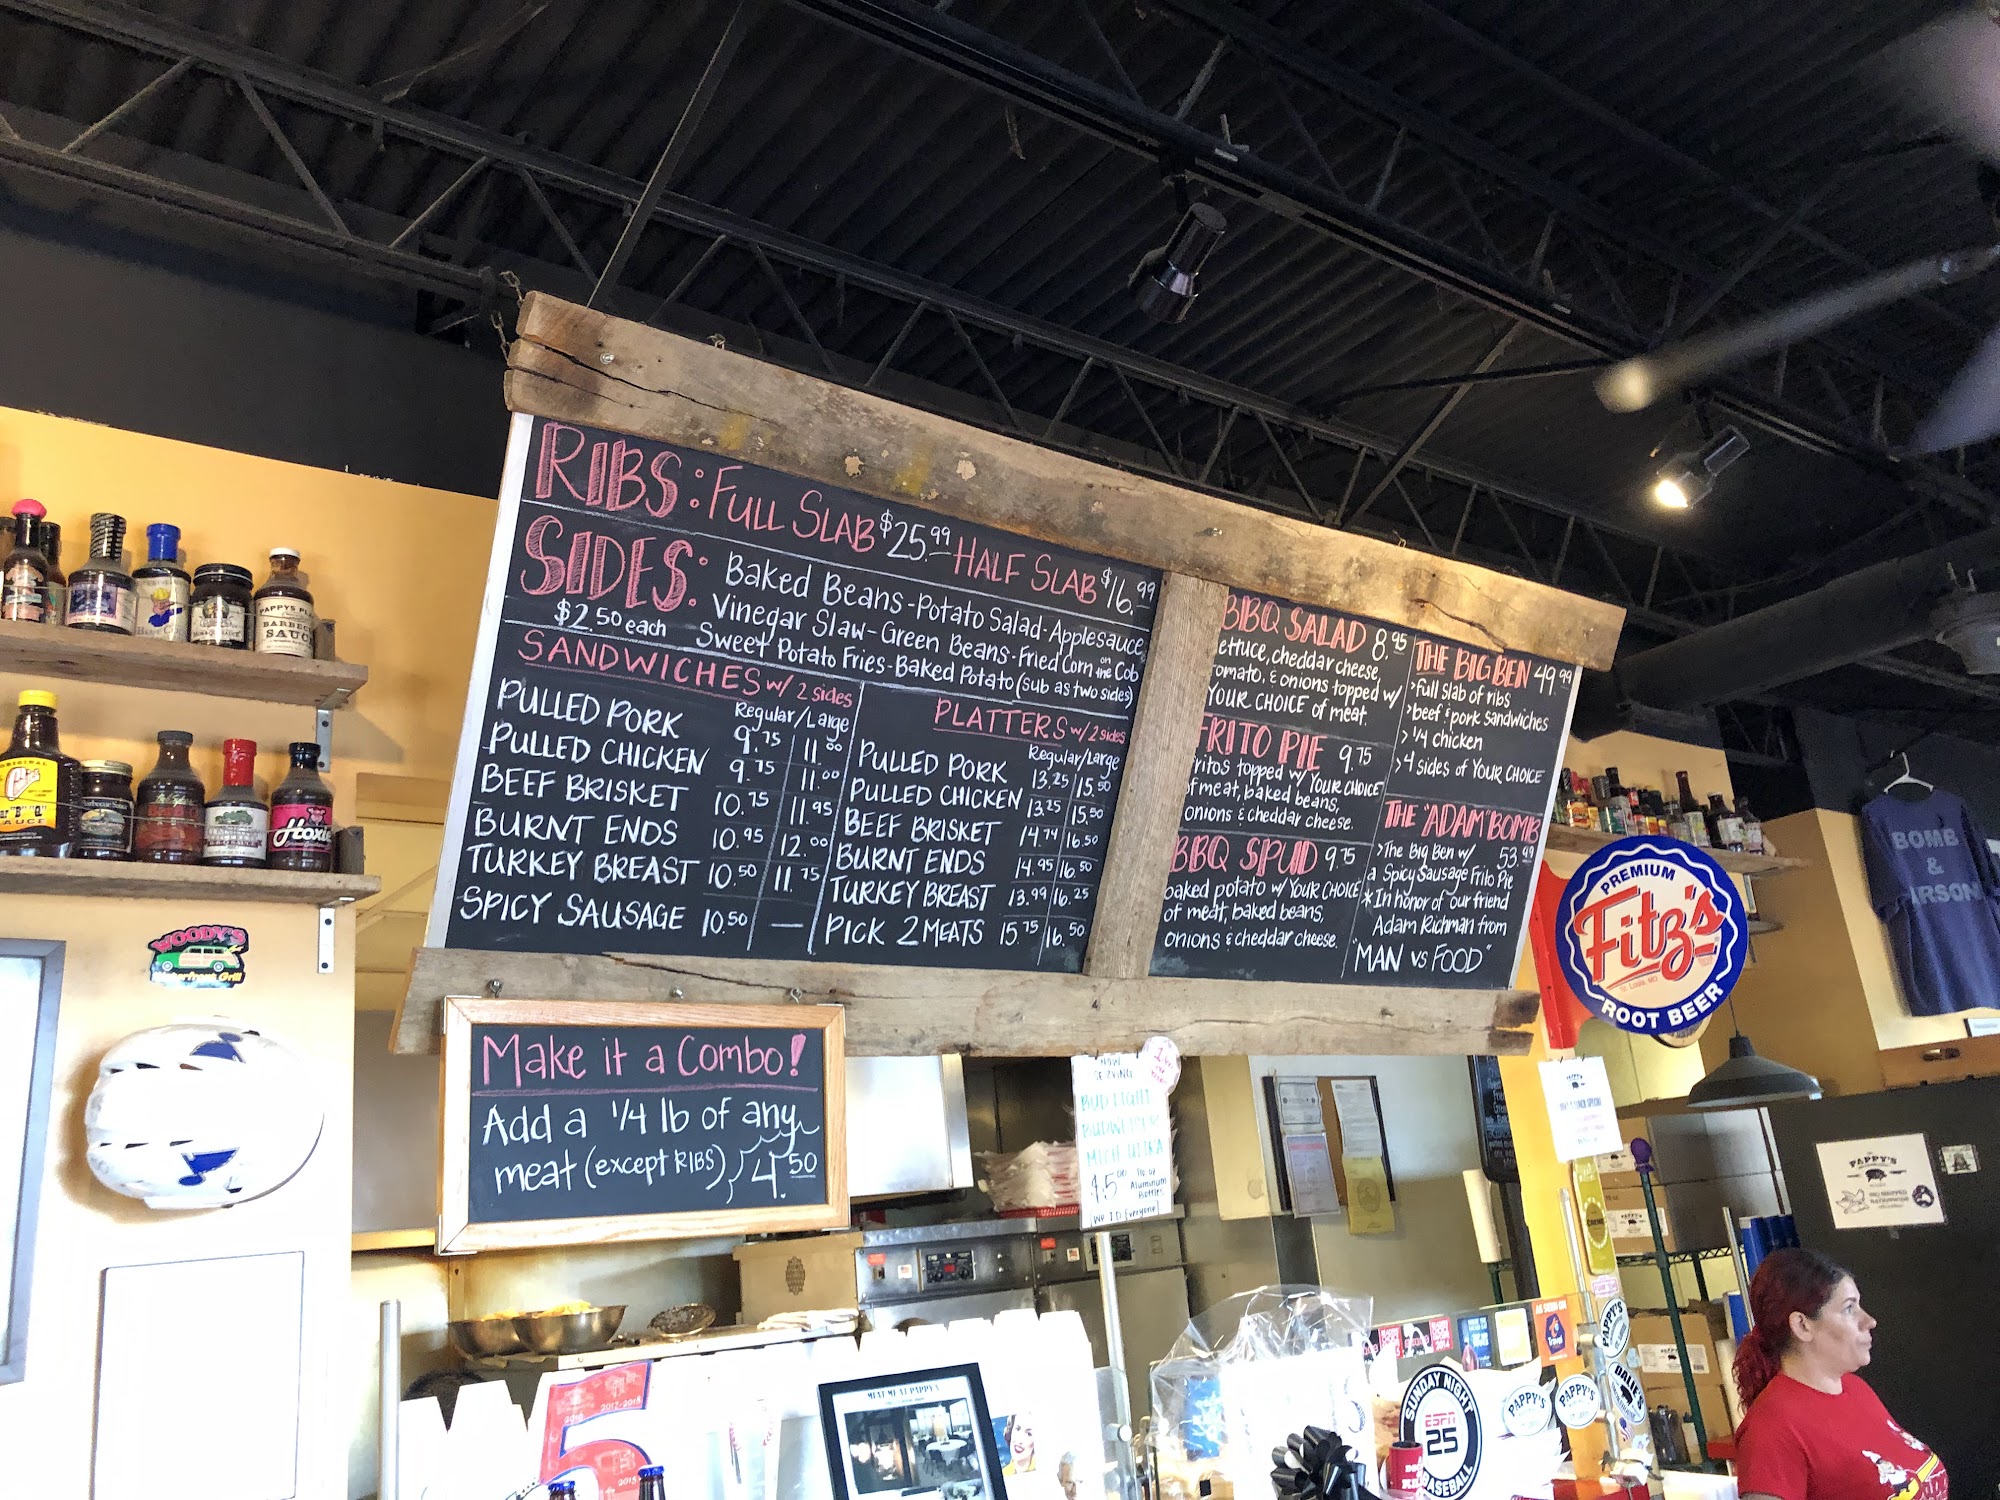 RIBS: FULL SLAB $25.99 HALF SLAB $16.99
SIDES: Baked Beans-Potato Salad-Applesauce
$2.50 each Vinegar Slaw-Green Beans-Fried Corn on the Cob
Sweet Potato Fries-Baked Potato (sub as two sides)
SANDWICHES w/ 2 sides
Regular/Large
PULLED PORK 9.75 11.00
PULLED CHICKEN 9.75 11.00
BEEF BRISKET 10.75 11.95
BURNT ENDS 10.95 12.00
TURKEY BREAST 10.50 11.75
SPICY SAUSAGE 10.50 —
PLATTERS w/ 2 sides
Regular/Large
PULLED PORK 13.25 15.50
PULLED CHICKEN 13.25 15.50
BEEF BRISKET 14.74 16.50
BURNT ENDS 14.95 16.50
TURKEY BREAST 13.99 16.25
PICK 2 MEATS 15.75 16.50
BBQ SALAD 8.95
ettuce, cheddar cheese,
omato, & onions topped w/
YOUR CHOICE of meat.
FRITO PIE 9.75
ritos topped w/ YOUR CHOICE
of meat, baked beans,
onions & cheddar cheese.
BBQ SPUD 9.75
baked potato w/ YOUR CHOICE
of meat, baked beans,
onions & cheddar cheese.
THE BIG BEN 49.99
>full slab of ribs
>beef & pork sandwiches
>1/4 chicken
>4 sides of YOUR CHOICE
THE "ADAM" BOMB
53.99
>The Big Ben w/
a Spicy Sausage Frito Pie
*In honor of our friend
Adam Richman from
"MAN vs. FOOD"
Make it a Combo!
Add a 1/4 lb of any
meat (except RIBS) 4.50
NOW
SERVING
BUD LIGHT
BUDWEISER
MICH ULTRA
Aluminum
Bottles
We I.D. Everyone!
PREMIUM
Fitz's
St. Louis, MO
ROOT BEER
BOMB
&
ARSON
WOODY'S
Waterfront Grill
PAPPYS
BARBECUE
SAUCE
ORIGINAL
SAUCE
Hoxie
PAPPY'S
MEAT ME AT PAPPY'S
2017-2018
2016
2015
5
SUNDAY NIGHT
ESPN
25
BASEBALL
PAPPY'S
PAPPY'S
PAPPY'S
AS SEEN ON
Travel